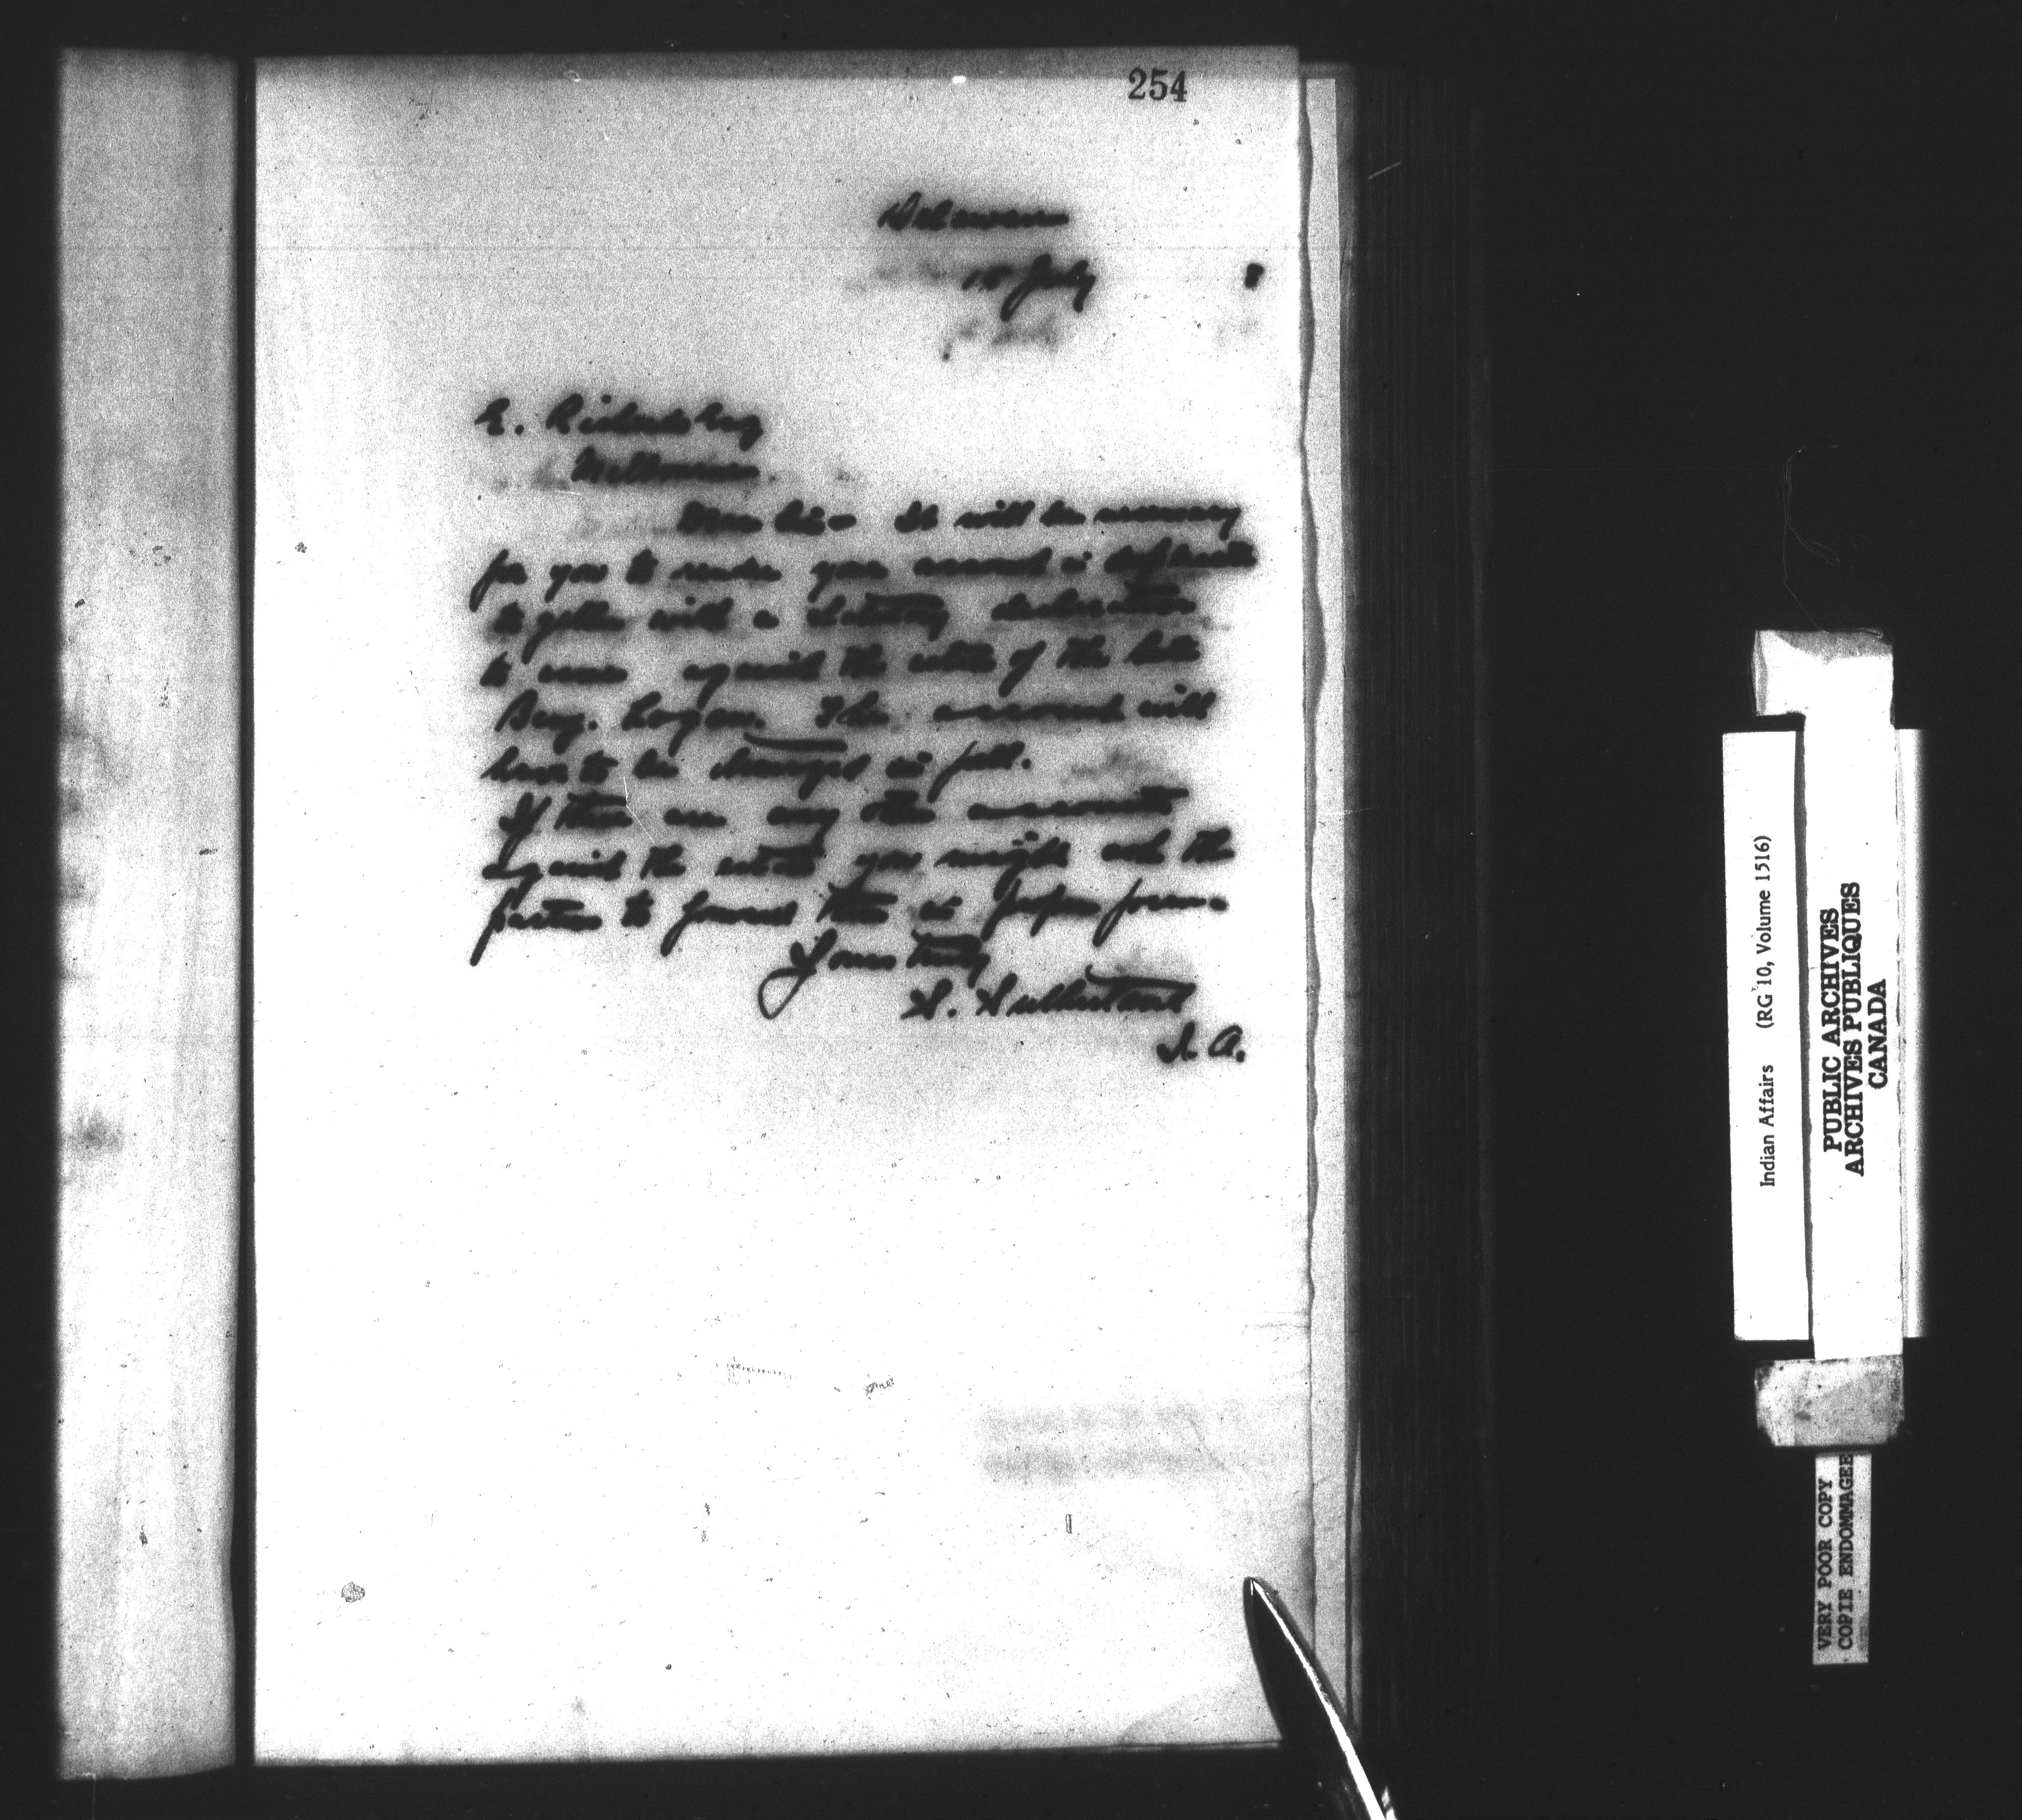 254
Delaware
15 July 8
E. Richards Esq
Melbourne.
Dear Sir It will be necessary
for you to render your account in duplicate
together with a statutory declaration
to same against the estate of the late
Benj. Logan. The account will
have to be in full.
If there are any other accounts
against the estate you might ask the
parties to forward them in proper form.
Yours truly
S. Sutherland
I. A.
Indian Affairs (RG 10, Volume 1516)
PUBLIC ARCHIVES
ARCHIVES PUBLIQUES
CANADA
VERY POOR COPY
COPIE ENDOMMAGEE